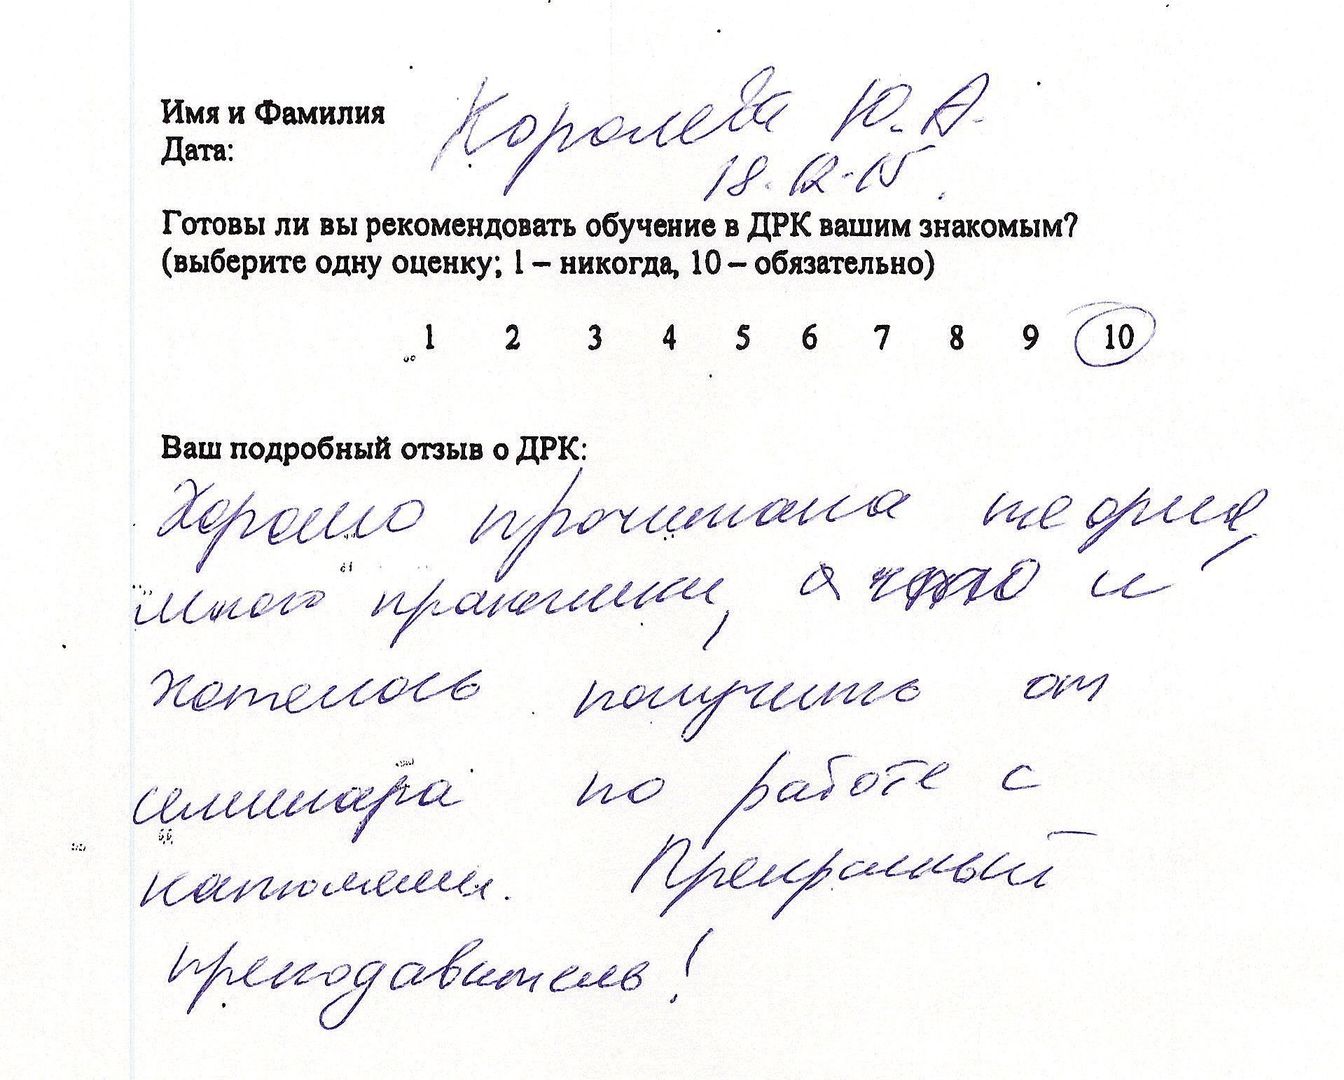 Имя и Фамилия Королева Ю.А.
Дата: 18.12.15
Готовы ли вы рекомендовать обучение в ДРК вашим знакомым?
(выберите одну оценку; 1 – никогда, 10 – обязательно)
1 2 3 4 5 6 7 8 9 10
Ваш подробный отзыв о ДРК:
Хорошо прочитана теория,
много практики, а что и
хотелось получить от
семинара по работе с
капюлями. Прекрасный
преподаватель!